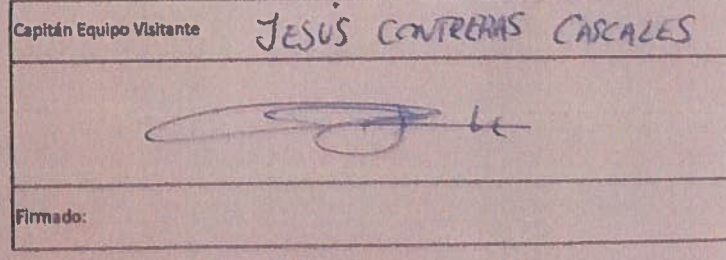 Capitán Equipo Visitante JESÚS CONTRERAS CASCALES
Firmado: